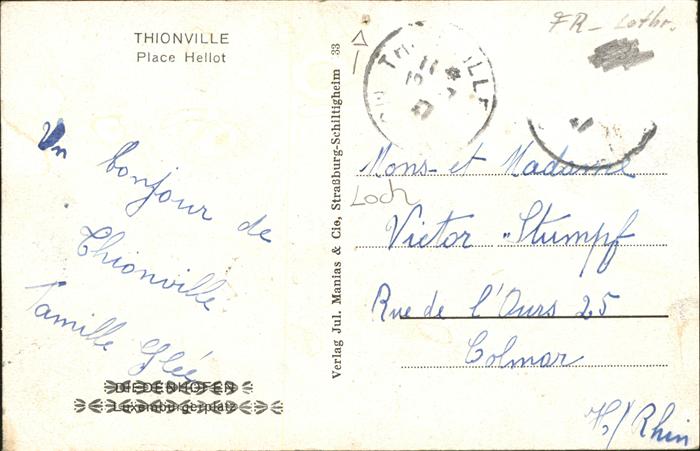 THIONVILLE
Place Hellot
Un
bonjour de
Thionville
Famille Glée
DIEDENHOFEN
Luxemburgerplatz
Verlag Jul. Manias & Cie, Straßburg-Schiltigheim 33
FR- Lothr.
Mons- et Madame
Loch
Victor Stumpf
Rue de l'Ours 25
Colmar
H/Rhin